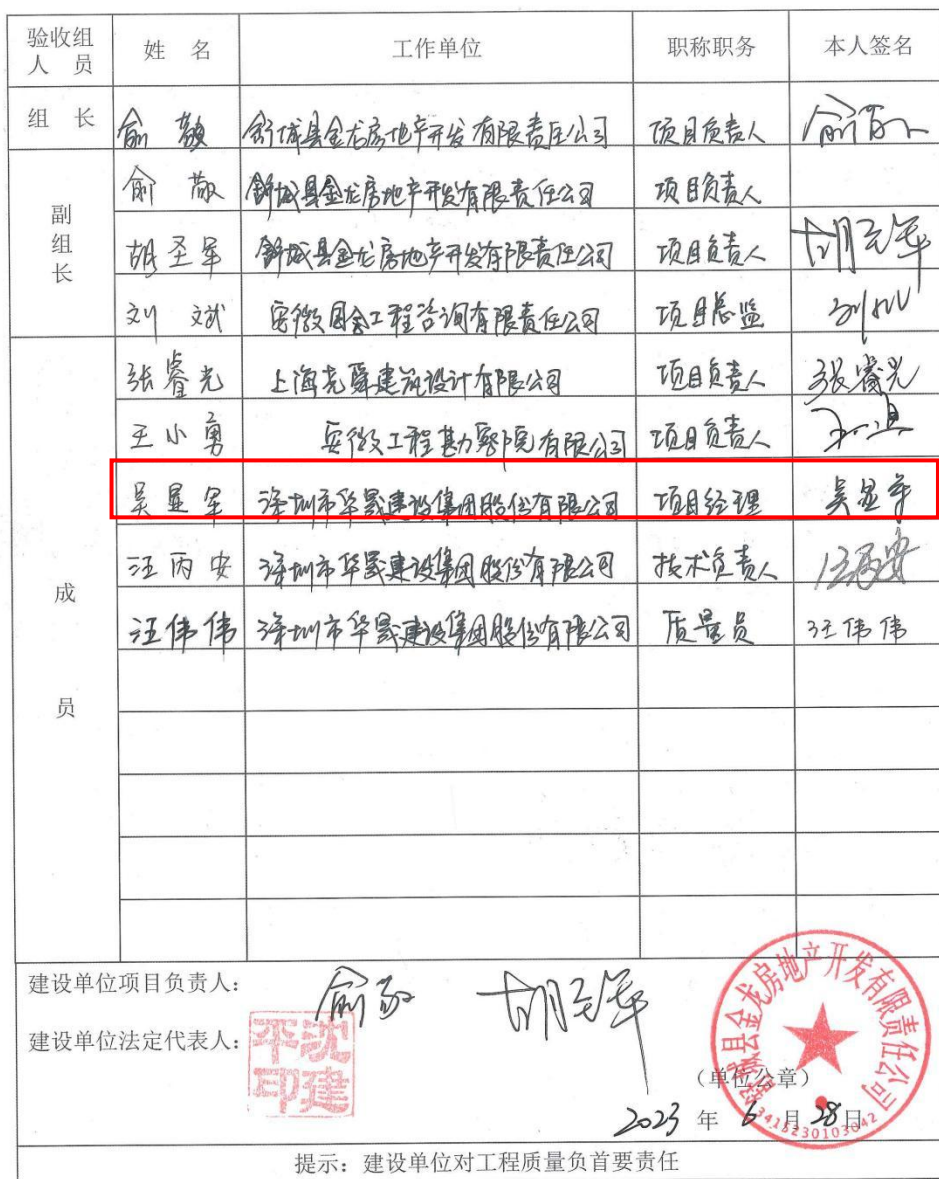 验收组人 员 姓 名 工作单位 职称职务 本人签名
组 长 俞敬 舒城县金龙房地产开发有限责任公司 项目负责人 俞敬
副组长 俞敬 舒城县金龙房地产开发有限责任公司 项目负责人
胡圣军 舒城县金龙房地产开发有限责任公司 项目负责人 胡圣军
刘斌 安徽国金工程咨询有限责任公司 项目总监 刘斌
成员 张睿光 上海尧舜建筑设计有限公司 项目负责人 张睿光
王小勇 安徽工程勘察院有限公司 项目负责人
吴显军 深圳市华晟建设集团股份有限公司 项目经理 吴显军
汪丙安 深圳市华晟建设集团股份有限公司 技术负责人 汪丙安
汪伟伟 深圳市华晟建设集团股份有限公司 质量员 汪伟伟
建设单位项目负责人: 俞敬 胡圣军
建设单位法定代表人: 沈建平印
舒城县金龙房地产开发有限责任公司
(单位公章)
2023 年 6 月 28 日
3415230103042
提示:建设单位对工程质量负首要责任